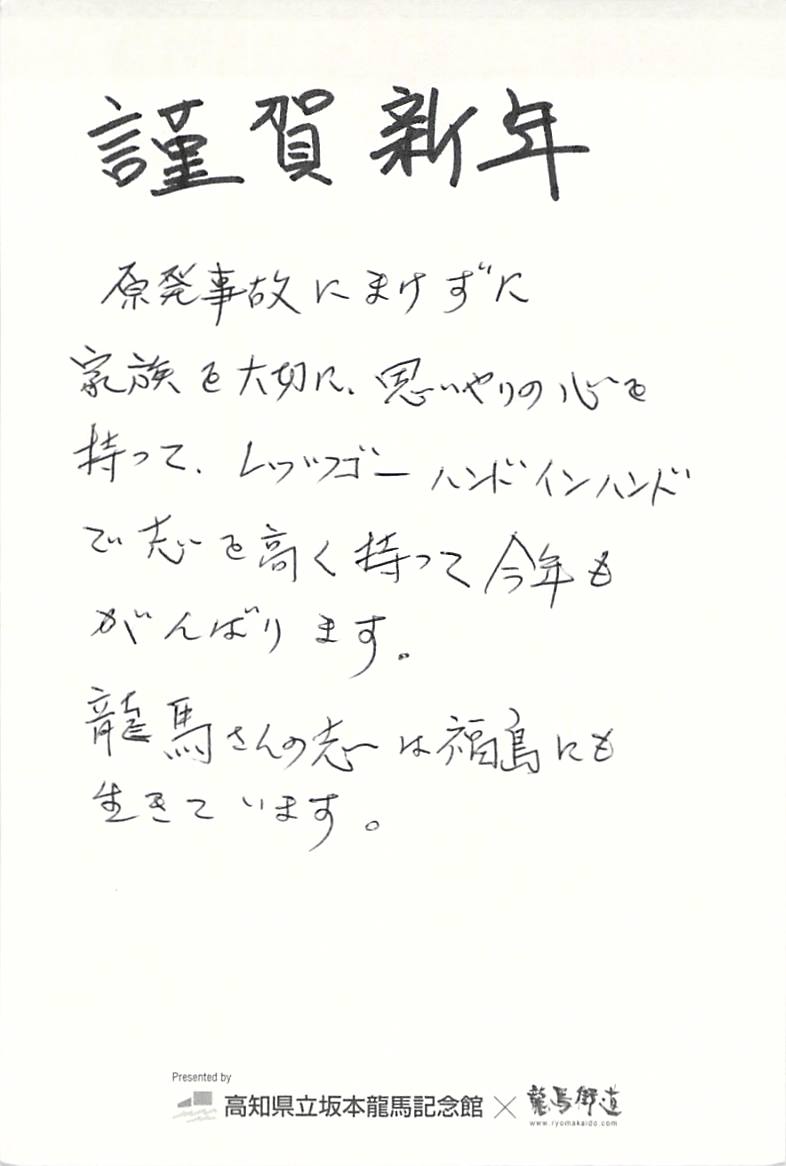 謹賀新年
原発事故にまけずに
家族を大切に、思いやりの心を
持って、レッツゴーハンドインハンド
で志を高く持って今年も
がんばります。
龍馬さんの志は福島にも
生きています。
Presented by
高知県立坂本龍馬記念館×龍馬街道
www.ryomakaido.com